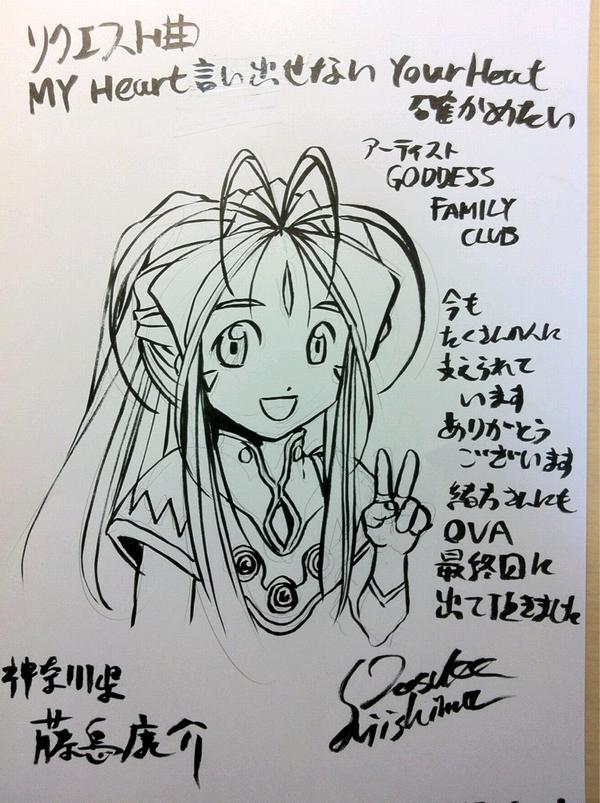 リクエスト曲
MY Heart 言い出せない Your Heat
確かめたい
アーティスト
GODDESS
FAMILY
CLUB
今も
たくさんの人に
支えられて
います
ありがとう
ございます
緒方さんにも
OVA
最終回に
出て頂きました
神奈川県
藤島康介
Kosuke
Fujishima